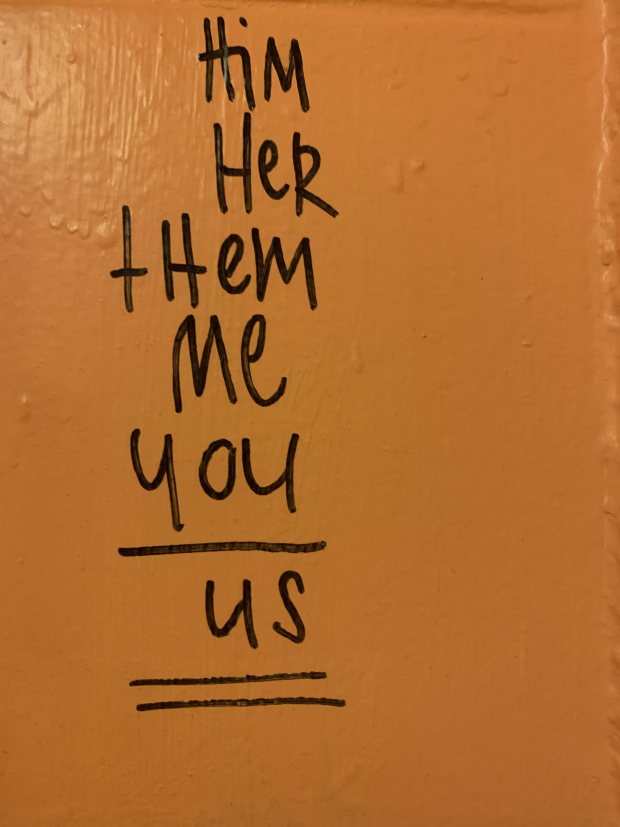 Him
Her
tHem
Me
you
us